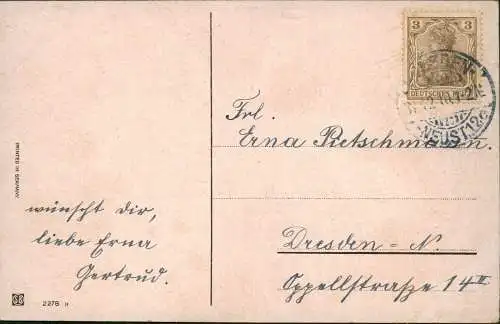 3
DEUTSCHES REICH
NEUST. 12c
Frl.
Erna Pietschmann.
Dresden-N.
Oppellstraße 14 II
wünscht dir,
liebe Erna
Gertrud.
PRINTED IN GERMANY
2276